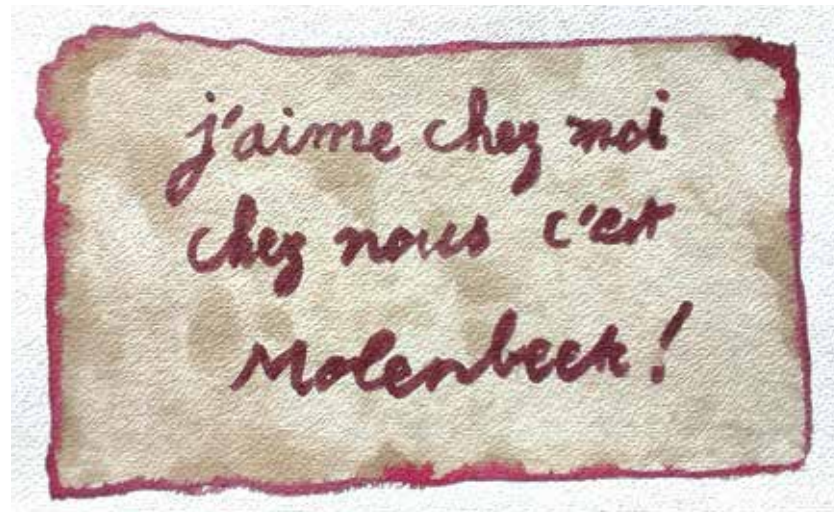 j'aime chez moi
chez nous c'est
Molenbeek !